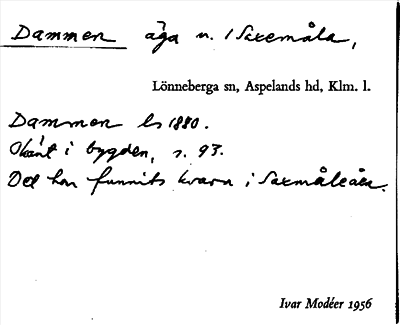 Dammen äga u. /Saxemåla,
Lönneberga sn, Aspelands hd, Klm. l.
Dammen ls 1880.
Okänt i bygden, s. 93.
Det har funnits kvarn i Saxmåleån.
Ivar Modéer 1956